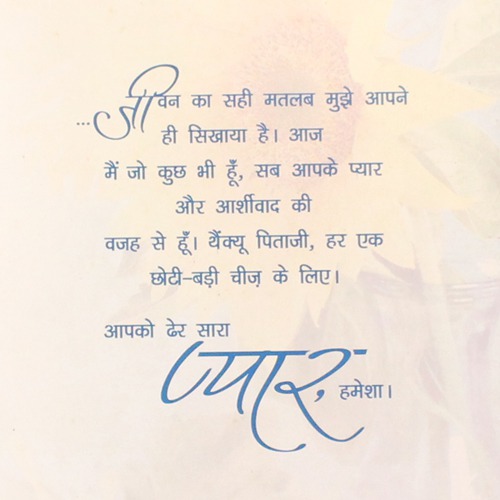 ...जीवन का सही मतलब मुझे आपने
ही सिखाया है। आज
मैं जो कुछ भी हूँ, सब आपके प्यार
और आर्शीवाद की
वजह से हूँ। थैंक्यू पिताजी, हर एक
छोटी-बड़ी चीज़ के लिए।
आपको ढेर सारा
प्यार, हमेशा।